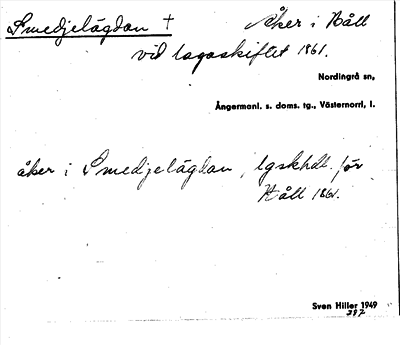 Smedjelägdan † Åker i Håll
vid lagaskiftet 1861.
Nordingrå sn,
Ångermanl. s. doms. tg., Västernorrl, l.
åker i Smedjelägdan, lgskhdl. för
Håll 1861.
Sven Hiller 1949
287